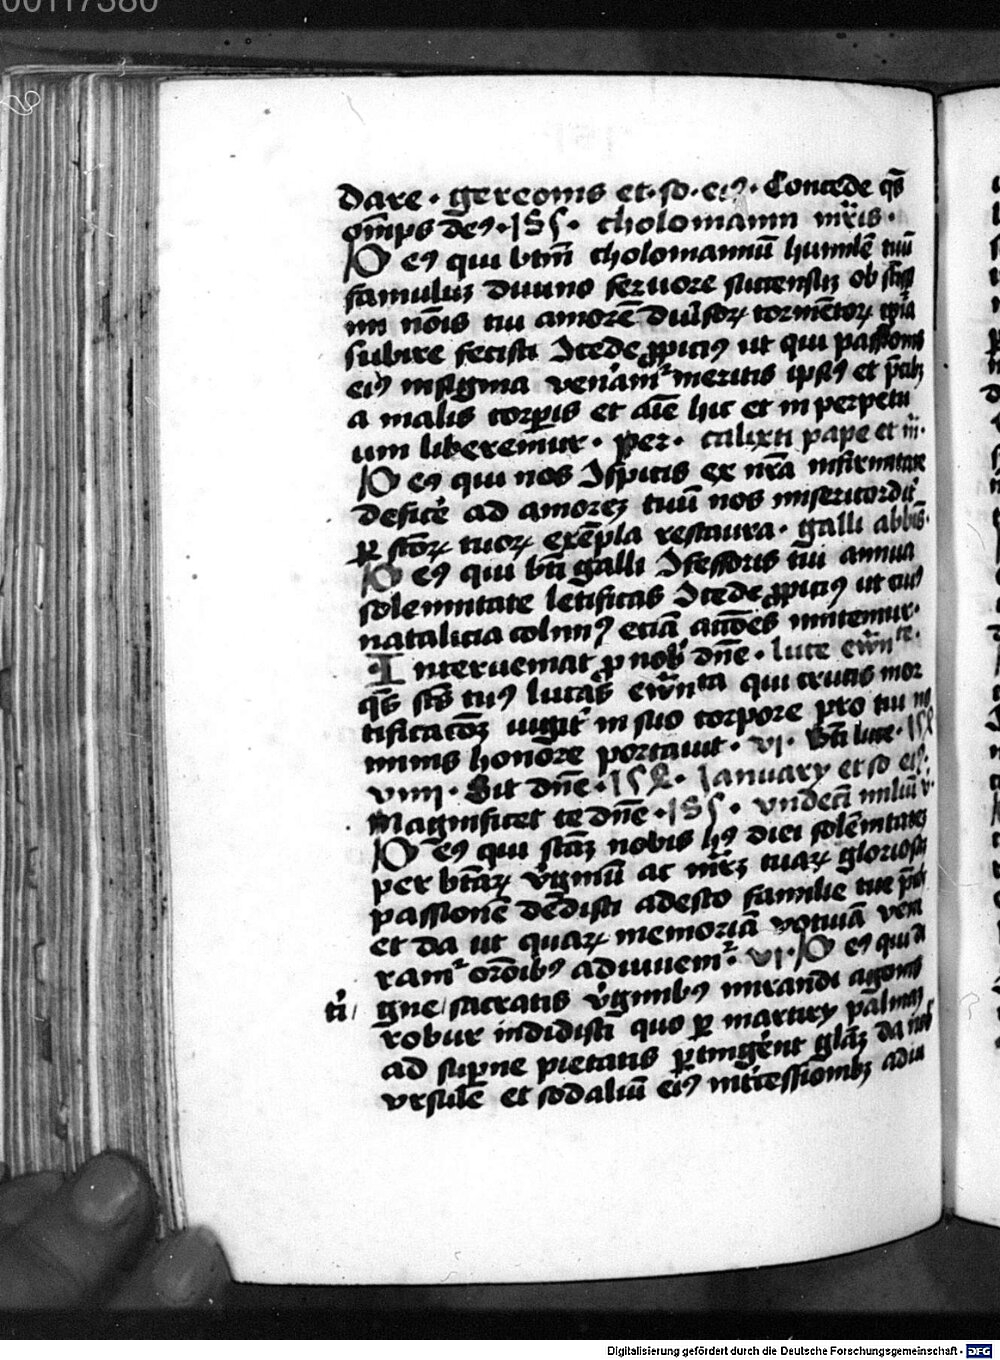 00117380
dare · gereonis et · so · ei9 · Concede qs̄
om̄ps de9 · 185 · cholomanni mr̄is ·
De9 qui btm̄ cholomannū humilē tuū
famulū diuino feruore succensū ob scīssi
mi nōis tui amorē dulsoꝝ tormētoꝝ
subire fecisti ꝯcede ꝓpici9 ut qui passionis
ei9 insignia venam̄ meritis ipsi9 et
a malis corꝑis et aīe hic et in perpetu
um liberemur · per · calixti pape et m̄ ·
De9 qui nos ꝯspicis ex nr̄a infirmitate
deficē ad amoreꝫ tuū nos misericordit̄
ꝑ scōꝝ tuoꝝ exēpla restaura · galli abbīs ·
De9 qui bt̄i galli ꝯfessoris tui annua
solemnitate letificas ꝯcede ꝓpici9 ut cui9
natalicia colim9 eciā accōes imitemur ·
Interueniat ꝓ nob̄ dn̄e · luce ewn̄te ·
qs̄ scs̄ tu9 lucas ewn̄ta qui crucis mor
tificacōꝫ iugit̄ in suo corpore pro tui no
minis honore portauit · vi · Bt̄i luce ·
viiii · Sit dn̄e · January et so ei9 ·
Magnificet te dn̄e · 185 · vndeci miliū v̄ ·
De9 qui sc̄aꝫ nobis h9 diei solēnitateꝫ
per bt̄aꝝ v̄ginū ac mr̄ꝫ tuaꝝ gloriosā
passionē dedisti adesto familie tue
et da ut quaꝝ memoriā votiuā vene
ram̄ orōib9 adiuuem̄ · vi · De9 qui di
ti / gne / sacratis v̄ginib9 mirandi agonis
robur indidisti quo ꝑ martiry palmaꝫ
ad suꝑne pietatis ꝑtingerēt glāꝫ da nob̄
vrsule et sodaliū ei9 int̄cessionibꝫ adiu
Digitalisierung gefördert durch die Deutsche Forschungsgemeinschaft - DFG